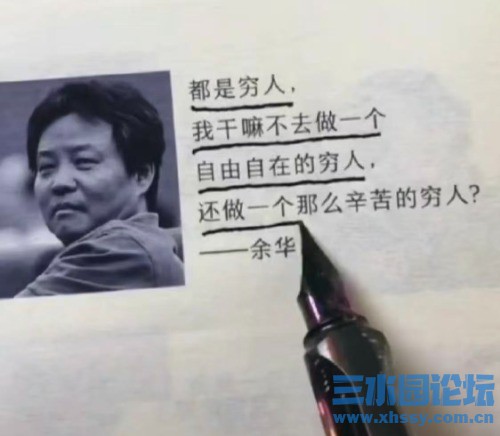 都是穷人，
我干嘛不去做一个
自由自在的穷人，
还做一个那么辛苦的穷人？
——余华
三水园论坛
www.xhssy.com.cn